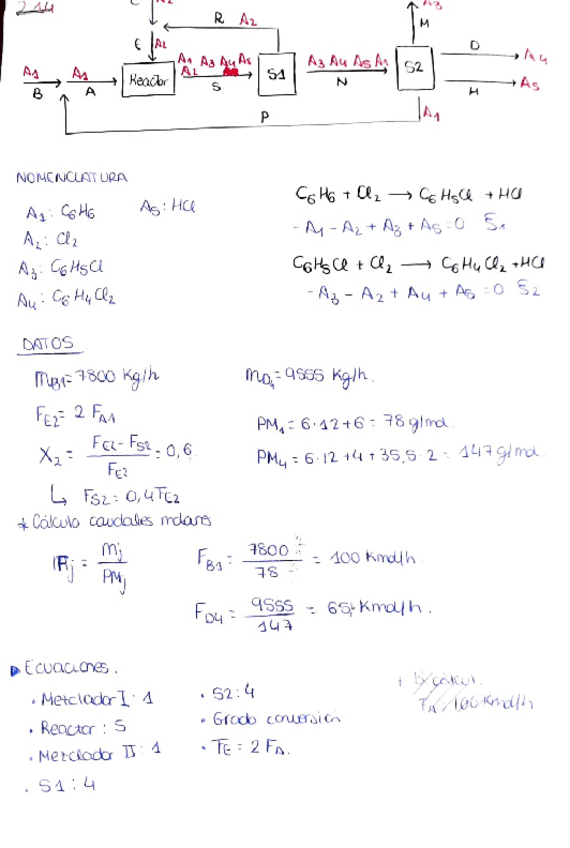 2.14
R A2
M
E A2
A1 A3 A4 A5
A2
A3 A4 A5 A1
D
A4
A1
A1
Reactor
S1
S2
B
A
S
N
H
A5
P
A1
NOMENCLATURA
A1: C6H6
A5: HCl
A2: Cl2
A3: C6H5Cl
A4: C6H4Cl2
C6H6 + Cl2 → C6H5Cl + HCl
- A1 - A2 + A3 + A5 = 0 ξ1
C6H5Cl + Cl2 → C6H4Cl2 + HCl
- A3 - A2 + A4 + A5 = 0 ξ2
DATOS
mB1 = 7800 Kg/h
mD4 = 9555 Kg/h.
FE2 = 2 FA1
PM1 = 6·12+6 = 78 g/mol.
X2 = (FE2 - FS2) / FE2 = 0,6
PM4 = 6·12+4+35,5·2 = 147 g/mol.
↳ FS2 = 0,4 FE2
* Cálculo caudales molares
Fj = mj / PMj
FB1 = 7800 / 78 = 100 Kmol/h.
FD4 = 9555 / 147 = 65 Kmol/h.
Ecuaciones.
· Metclador I: 1
· Reactor: 5
· Metclador II: 1
· S1: 4
· S2: 4
· Grado conversión
· FE = 2 FA.